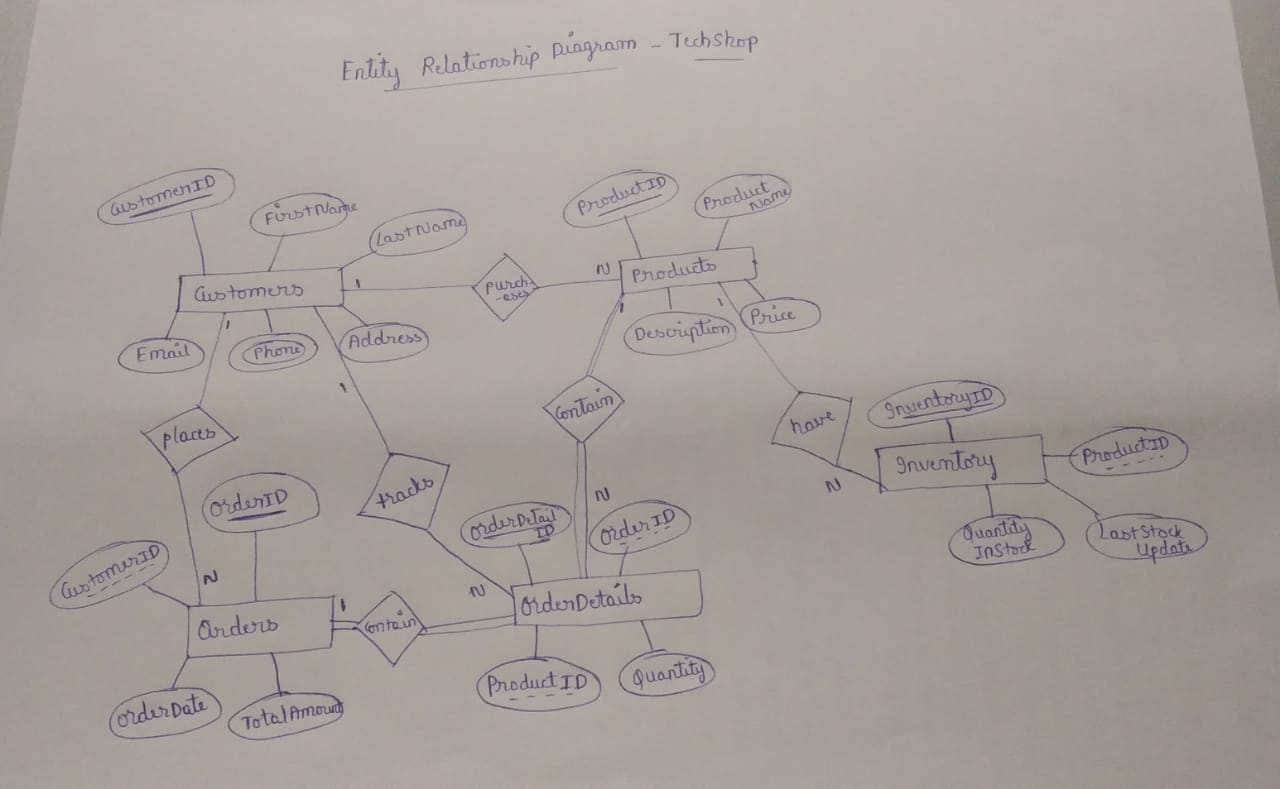 Entity Relationship Diagram - TechShop
CustomerID
FirstName
LastName
ProductID
Product
Name
Customers
1
Purch
-ases
N
Products
Email
1
Phone
Address
Description
1
1
Price
places
1
tracks
Contain
have
InventoryID
Inventory
ProductID
N
Quantity
InStock
LastStock
Update
OrderID
OrderDetail
ID
N
OrderID
CustomerID
N
Orders
1
Contain
N
OrderDetails
OrderDate
TotalAmount
ProductID
Quantity